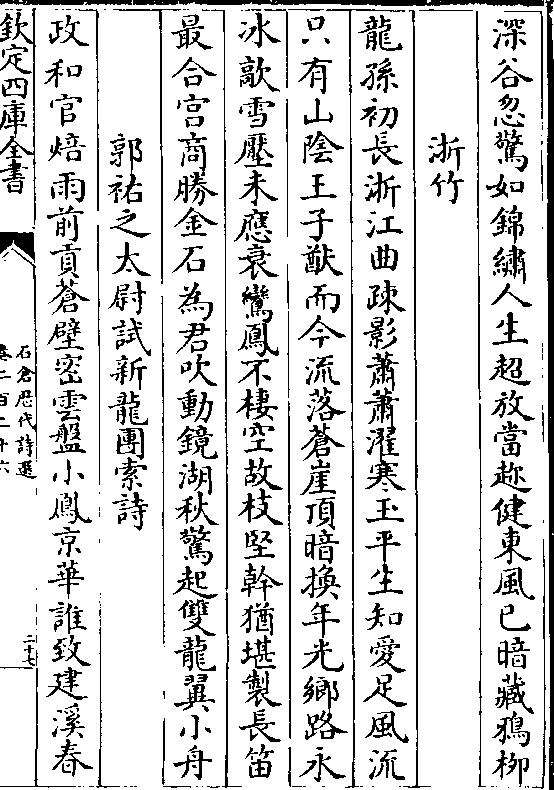 深谷忽驚如錦繡人生超放當趂健東風已暗藏鴉柳
浙竹
龍孫初長浙江曲疎影蕭蕭濯寒玉平生知愛足風流
只有山陰王子猷而今流落蒼崖頂暗換年光鄉路永
冰歌雪壓未應衰鸞鳳不棲空故枝堅幹猶堪製長笛
最合宫商勝金石為君吹動鏡湖秋驚起雙龍翼小舟
郭祐之太尉試新龍團索詩
政和官焙雨前貢蒼璧密雲盤小鳳京華誰致建溪春
欽定四庫全書
石倉歷代詩選
卷二百二十六
二十七